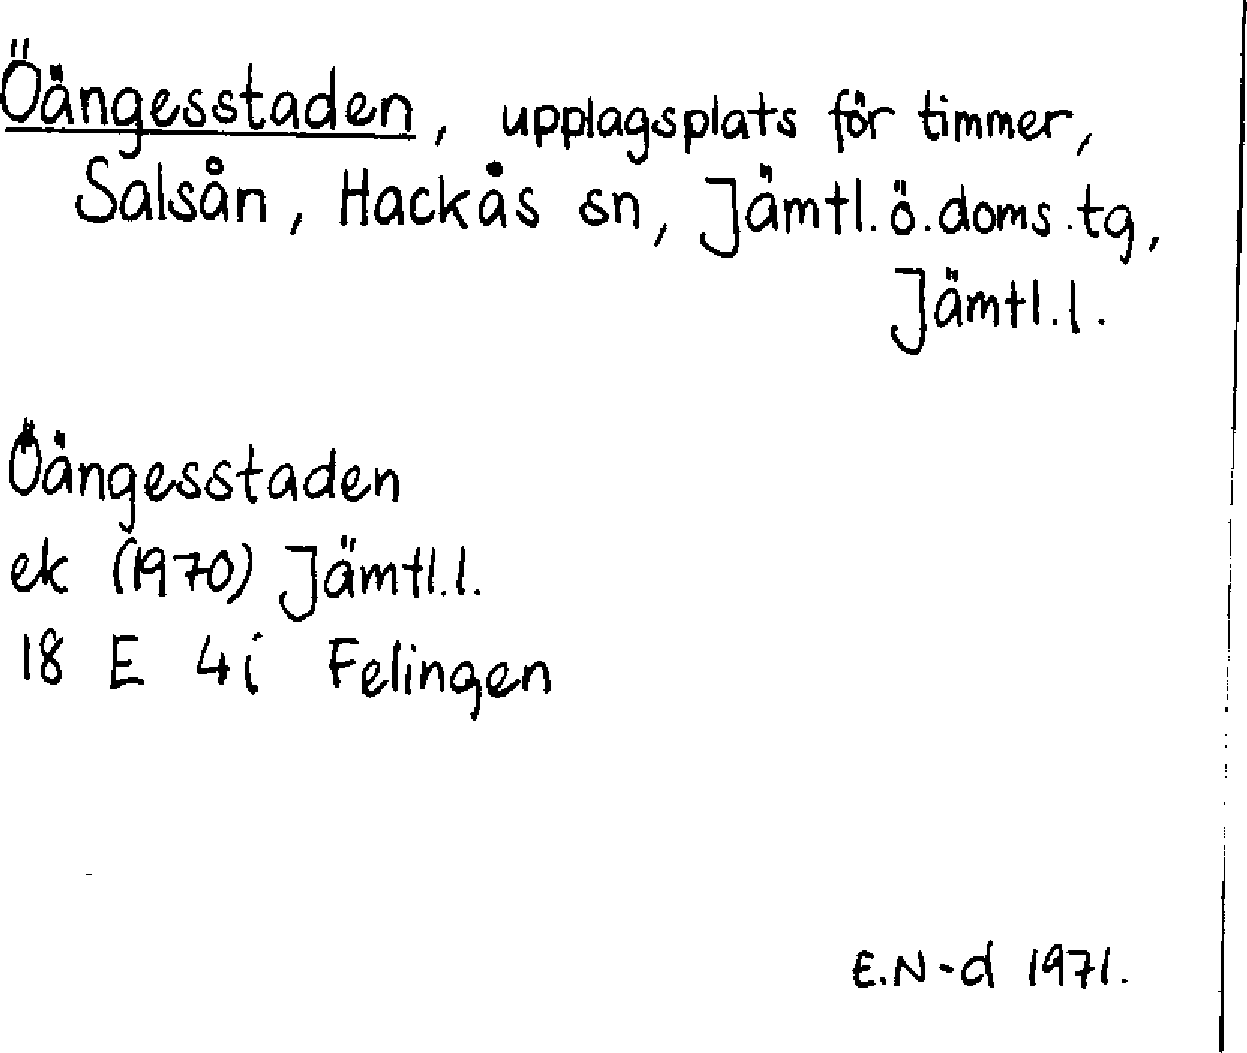 Öängesstaden, upplagsplats för timmer,
Salsån, Hackås sn, Jämtl.ö.doms.tg,
Jämtl.l.
Öängesstaden
ek (1970) Jämtl.l.
18 E 4i Felingen
E.N-d 1971.